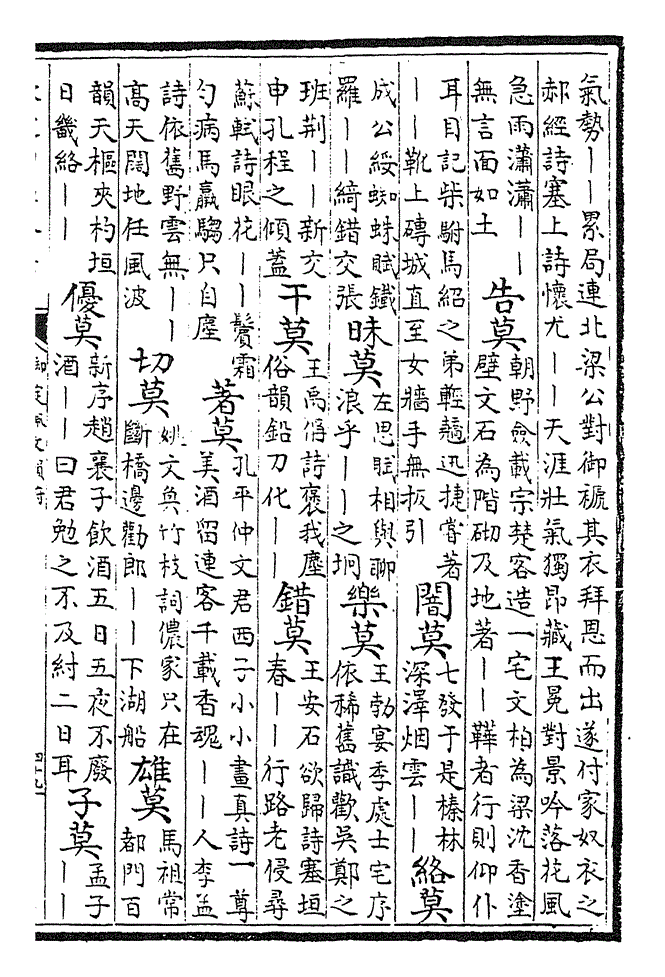 氣勢——累局連北梁公對御褫其衣拜恩而出遂付家奴衣之
郝經詩塞上詩懷尤——天涯壯氣獨昂藏王冕對景吟落花風
急雨瀟瀟——
無言面如土
告莫
朝野僉載宗楚客造一宅文柏為梁沈香塗
壁文石為階砌及地著——鞾者行則仰仆
耳目記柴駙馬紹之弟輕趫迅捷嘗著
——靴上磚城直至女牆手無扳引
闇莫
七發于是榛林
深澤烟雲——
絡莫
成公綏蜘蛛賦鐵
羅——綺錯交張
昧莫
左思賦相與聊
浪乎——之坰
樂莫
王勃宴季處士宅序
依稀舊識歡吳鄭之
班荆——新交
申孔程之傾蓋
干莫
王禹偁詩褒我塵
俗韻鉛刀化——
錯莫
王安石欲歸詩塞垣
春——行路老侵尋
蘇軾詩眼花——鬢霜
勺病馬羸騶只自塵
著莫
孔平仲文君西子小小畫真詩一尊
美酒留連客千載香魂——人李孟
詩依舊野雲無——
高天闊地任風波
切莫
姚文奐竹枝詞儂家只在
斷橋邊勸郎——下湖船
雄莫
馬祖常
都門百
韻天樞夾杓垣
日畿絡——
優莫
新序趙襄子飲酒五日五夜不廢
酒——曰君勉之不及紂二日耳
子莫
孟子
——